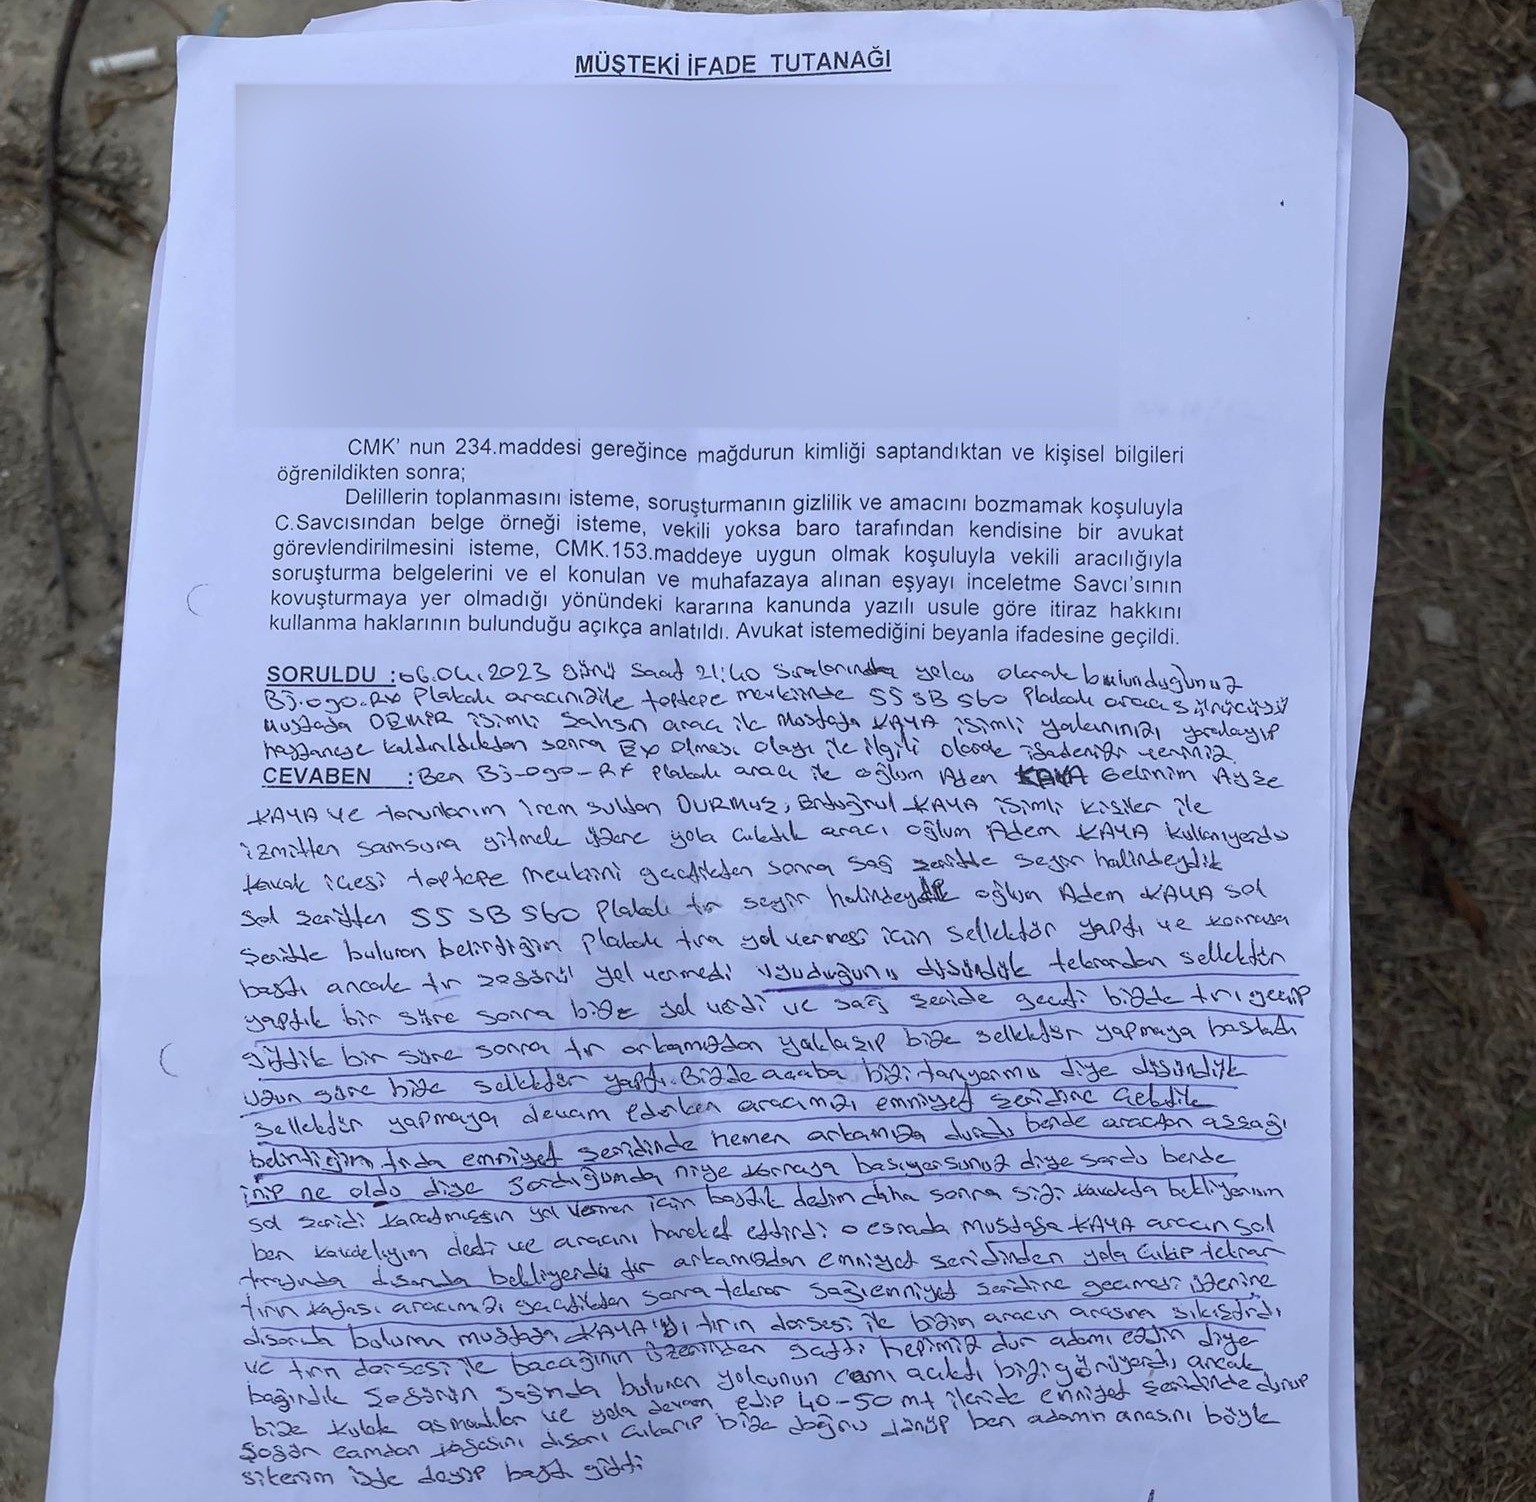 MÜŞTEKİ İFADE TUTANAĞI
CMK' nun 234.maddesi gereğince mağdurun kimliği saptandıktan ve kişisel bilgileri
öğrenildikten sonra;
Delillerin toplanmasını isteme, soruşturmanın gizlilik ve amacını bozmamak koşuluyla
C.Savcısından belge örneği isteme, vekili yoksa baro tarafından kendisine bir avukat
görevlendirilmesini isteme, CMK.153.maddeye uygun olmak koşuluyla vekili aracılığıyla
soruşturma belgelerini ve el konulan ve muhafazaya alınan eşyayı inceletme Savcı'sının
kovuşturmaya yer olmadığı yönündeki kararına kanunda yazılı usule göre itiraz hakkını
kullanma haklarının bulunduğu açıkça anlatıldı. Avukat istemediğini beyanla ifadesine geçildi.
SORULDU : 06.04.2023 günü saat 21:40 sıralarında yolcu olarak bulunduğunuz
BJ-090-RX Plakalı aracınız ile toptepe mevkiinde 55 SB 560 Plakalı araç sürücüsü
Mustafa DEMİR isimli şahsın araç ile Mustafa KAYA isimli yakınınızı yaralayıp
hastaneye kaldırıldıktan sonra Ex olması olayı ile ilgili olarak ifadenizi veriniz.
CEVABEN : Ben BJ-090-RX plakalı araç ile oğlum Adem KAYA Gelinim Ayşe
KAYA ve torunlarım irem sultan DURMUŞ, Ertuğrul KAYA isimli kişiler ile
izmitten samsuna gitmek üzere yola çıktık aracı oğlum Adem KAYA kullanıyordu
kavak ilçesi toptepe mevkiini geçtikten sonra sağ şeritte seyir halindeydik
sol şeritten 55 SB 560 Plakalı tır seyir halindeydi oğlum Adem KAYA sol
şeritte bulunan belirttiğim plakalı tıra yol vermesi için sellektör yaptı ve kornaya
bastı ancak tır şoförü yol vermedi uyuduğunu düşündük tekrardan sellektör
yaptık bir süre sonra bize yol verdi ve sağ şeride geçti bizde tırı geçip
gittik bir süre sonra tır arkamızdan yaklaşıp bize sellektör yapmaya başladı
uzun süre bize sellektör yaptı. Bizde acaba bizi tanıyormu diye düşündük
sellektör yapmaya devam ederken aracımızı emniyet şeridine çektik
belirttiğim tırda emniyet şeridinde hemen arkamıza durdu bende araçtan aşşağı
inip ne oldu diye sorduğumda niye kornaya basıyorsunuz diye sordu bende
sol şeridi kapatmışsın yol vermen için bastık dedim daha sonra sizi kavakta bekliyorum
ben kavaklıyım dedi ve aracını hareket ettirdi o esnada Mustafa KAYA aracın sol
tarafında dışarıda bekliyordu tır arkamızdan emniyet şeridinden yola çıkıp tekrar
tırın kafası aracımızı geçtikten sonra tekrar sağ emniyet şeridine geçmesi üzerine
dışarıda bulunan Mustafa KAYA'yı tırın dorsesi ile bizim aracın arasına sıkıştırdı
ve tırın dorsesi ile bacağının üzerinden geçti hepimiz dur adamı ezdin diye
bağırdık şoförün sağında bulunan yolcunun camı açıktı bizi görüyordu ancak
bize kulak asmadılar ve yola devam edip 40-50 mt ileride emniyet şeridinde durup
şoför camdan kafasını dışarı çıkarıp bize doğru dönüp ben adamın anasını böyle
sikerim işte deyip bastı gitti